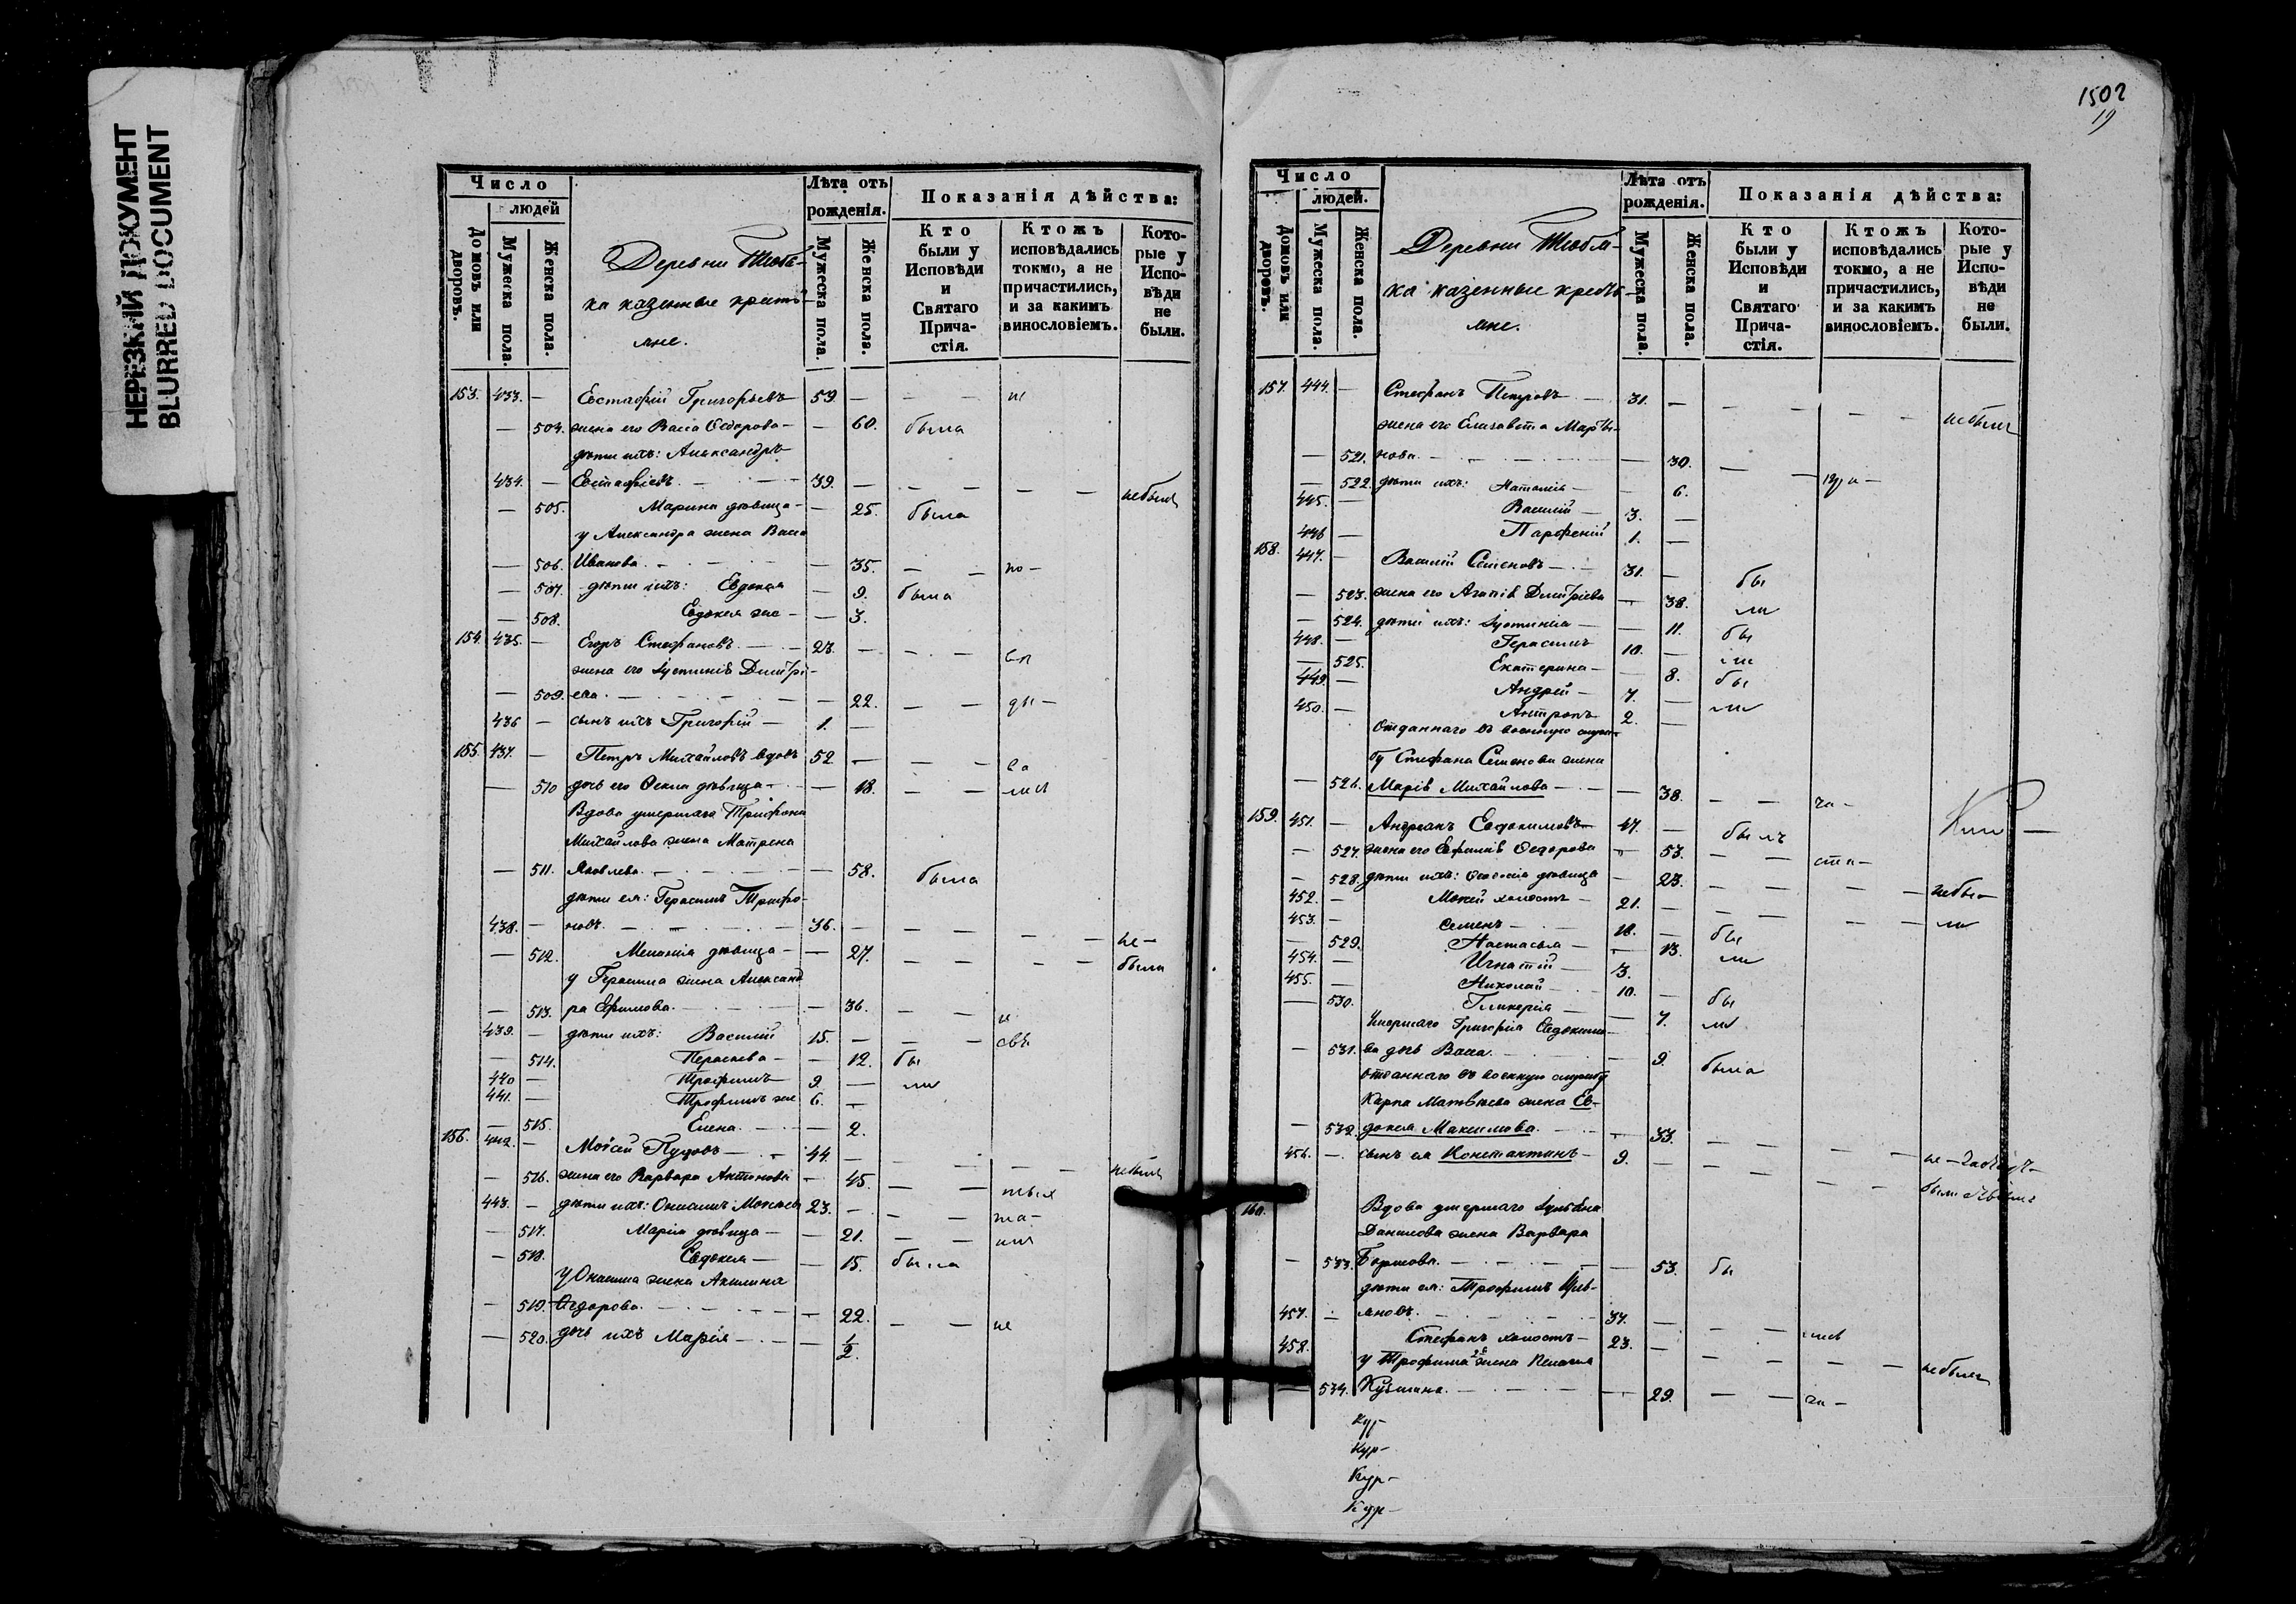 НЕРЕЗКИЙ ДОКУМЕНТ
BLURRED DOCUMENT
Число
людей
Домовъ или дворовъ.
Мужеска пола.
Женска пола.
Деревни
ка казенные кресть-
яне.
Лѣта отъ рожденія.
Мужеска пола.
Женска пола.
Показанія дѣйства:
Кто были у Исповѣди и Святаго Прича-стія.
Ктожъ исповѣдались токмо, а не причастились, и за какимъ винословіемъ.
Кото-рые у Испо-вѣди не были.
153. 433. — Евстафій Григорьевъ 59. — — — не
— 504. жена его Васса Ѳедорова — — 60. была
дѣти ихъ: Александръ
434. — Евстафіевъ 39. — — — — — небылъ
— 505. Марина дѣвица — — 25. была
у Александра жена Васса
— 506. Иванова — 35. — — по —
— 507. дѣти ихъ: Евдокея — 9. была
— 508. Евдокея же — — 3.
154. 435. — Егоръ Стефановъ 27. — — —
жена его Іустинія Дмитрі-
— 509. ева. — 22. — —
436 — сынъ ихъ Григорій — 1. —
155. 437. — Петръ Михайловъ вдовъ 52 — — —
— 510 дочь его Ѳекла дѣвица — — 18. — —
Вдова умершаго Трифона
Михайлова жена Матрена
— 511. Яковлева. — 58. была
дѣти ея: Герасимъ Трифо-
438. — новъ. 36. — — — — — не —
— 512. Меланія дѣвица — — 27. — — — — были
у Герасима жена Александ
— 513. ра Ефимова. — 36. — —
439. — дѣти ихъ: Василій 15. — — —
— 514. Параскева — — 12. бы
440 — Трофимъ 9. — ли
441. — Трофимъ же 6. —
— 515. Елена. — 2.
156. 442. — Моѵсей Пудовъ 44. — — — — — небылъ
— 516. жена его Варвара Антонова — 45. — —
443. — дѣти ихъ: Онисимъ Моисеевъ 23. — — —
— 517. Марія дѣвица — — 21. — —
— 518. Евдокея — — 15. была
У Онисима жена Акилина
— 519. Ѳедорова. — 22. — — не
— 520. дочь ихъ Марія — 1/2.
1502
19
Число
людей.
Домовъ или дворовъ.
Мужеска пола.
Женска пола.
Деревни
ка казенные кресть-
яне.
Лѣта отъ рожденія.
Мужеска пола.
Женска пола.
Показанія дѣйства:
Кто были у Исповѣди и Святаго Прича-стія.
Ктожъ исповѣдались токмо, а не причастились, и за какимъ винословіемъ.
Кото-рые у Испо-вѣди не были.
157. 444. — Стефанъ Петровъ 31. — — — — — небылъ
жена его Елизавета Марты-
— 521. нова. — 30. — —
— 522. дѣти ихъ: Наталія — — 6.
445. — Василій — 3. —
446 — Парфеній 1. —
158. 447. — Василій Семеновъ 31. — бы
— 523. жена его Агапія Дмитріева — 38. ли
— 524. дѣти ихъ: Іустинія — 11. бы
448. — Герасимъ 10. — ли
— 525. Екатерина — 8. бы
449. — Андрей — 7. — ли
450. — Антропъ 2. —
Отданнаго въ военную служ-
бу Стефана Семенова жена
— 526. Марія Михайлова — — 38. — —
159. 451. — Андреанъ Евдокимовъ 47. — былъ
— 527. жена его Евфимія Ѳедорова — 53. — —
— 528. дѣти ихъ: дѣвица — 23. — — — — небы —
452. — Мокей холостъ — 21. — — — — — ли
453. — Семенъ 18. — бы
— 529. Настасья — — 13. ли
454. — Игнатій 13.
455. — Николай 10. — бы
— 530. Гликерія — 7. ли
Умершаго Григорія Евдокимо-
— 531. ва дочь Васса. — 9. была
отданнаго въ военную службу
Карпа Матвѣева жена Ев-
— 532. докея Максимова. — 33. — — — — не —
456. — сынъ ея Константинъ — 9. — — — — — были
160. Вдова умершаго
Данилова жена Варвара
— 533. Борисова. — 53. бы
дѣти ея: Трофимъ Улья-
457. — новъ. 37. — — —
458. Стефанъ холостъ — 23. — — — — — небылъ
у Трофима 2я жена Пелагея
— 534. Кузмина. — 29. — —
Кур-
Кур-
Кур-
Кур-